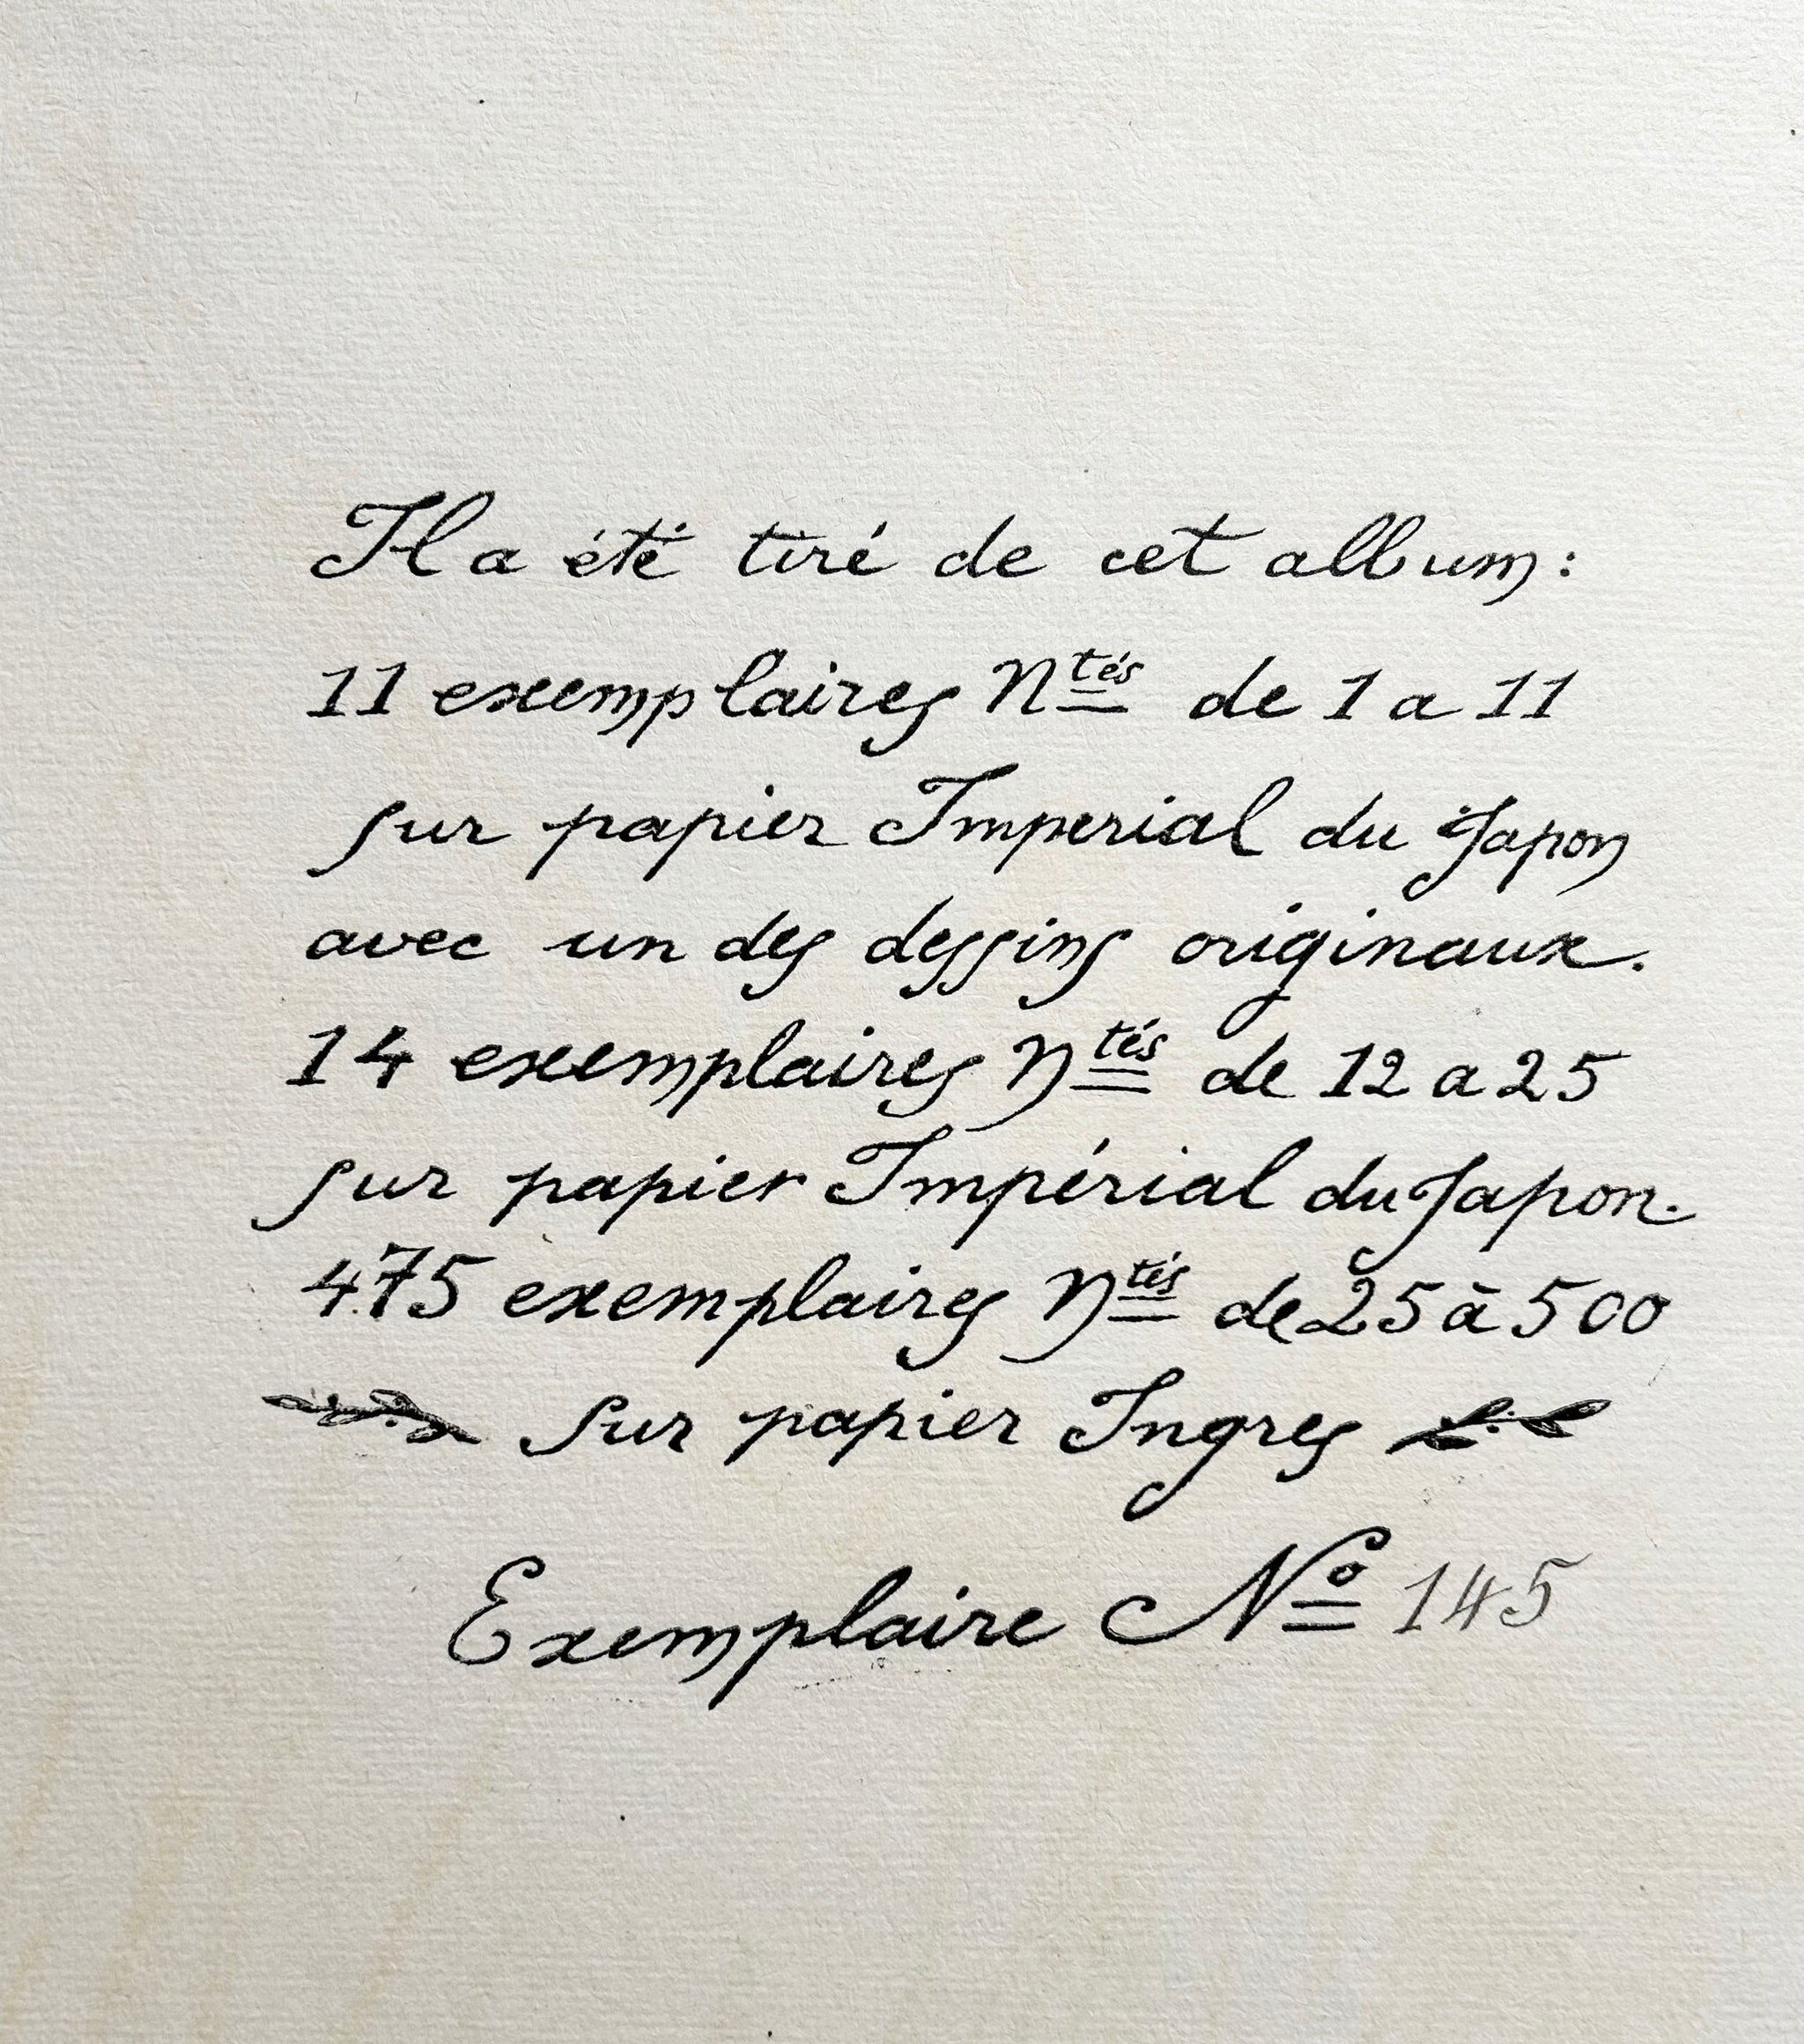 Il a été tiré de cet album:
11 exemplaires Ntés de 1 a 11
sur papier Imperial du Japon
avec un des dessins originaux.
14 exemplaires Ntés de 12 a 25
sur papier Impérial du Japon.
475 exemplaires Ntés de 25 à 500
sur papier Ingres
Exemplaire No 145